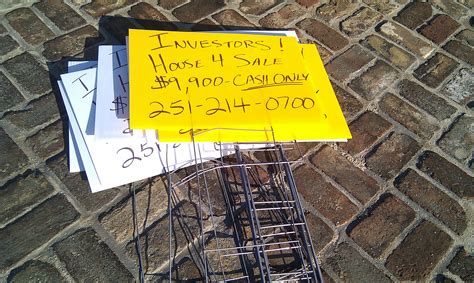 INVESTORS!
HOUSE 4 SALE
$9,900-CASH ONLY
251-214-0700
251